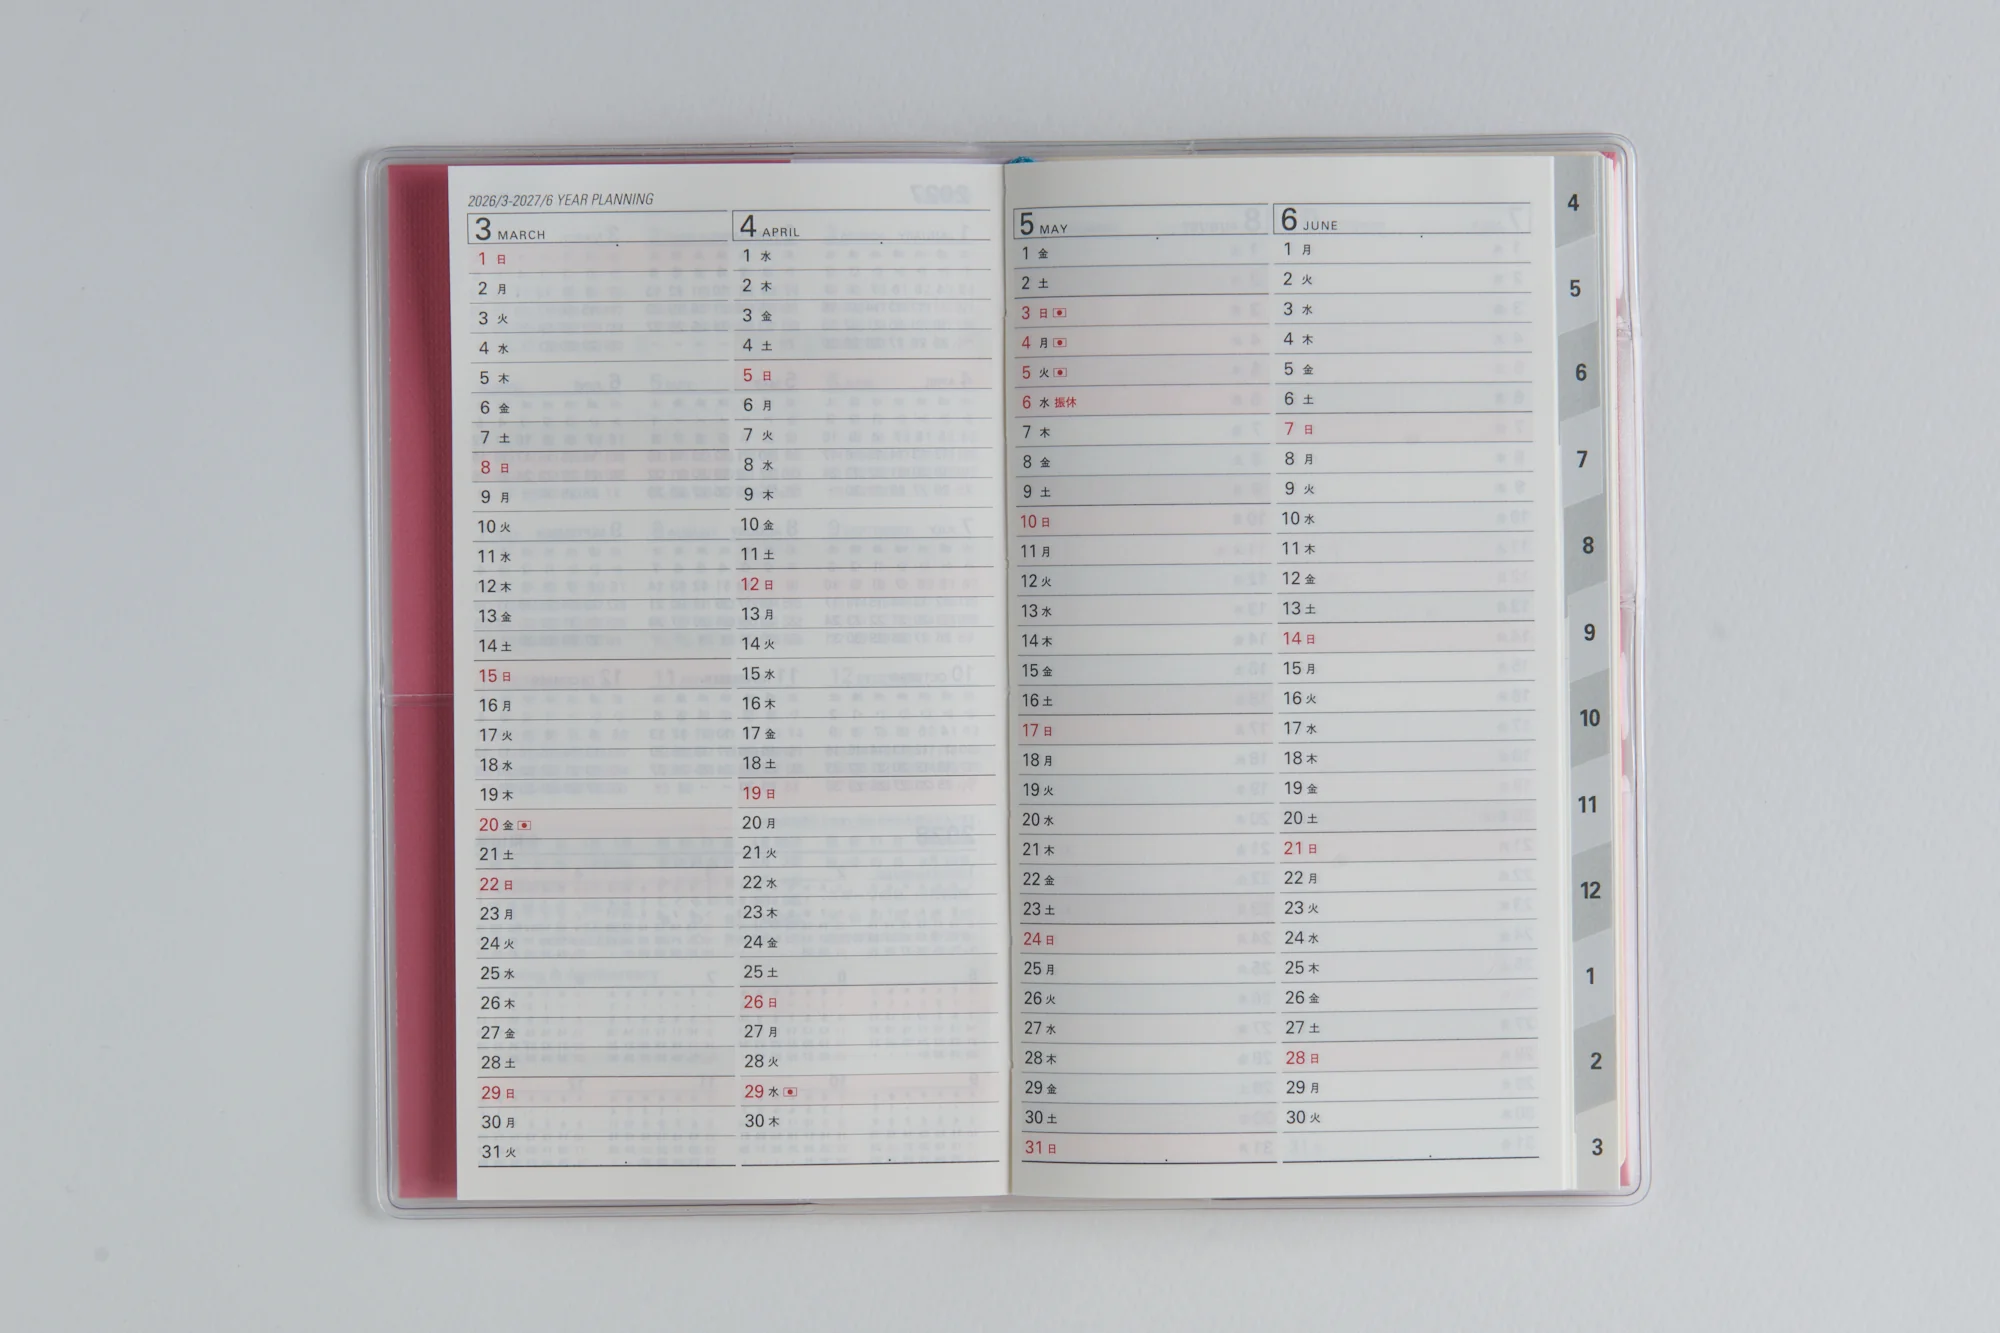 2026/3-2027/6 YEAR PLANNING
3 MARCH
1 日
2 月
3 火
4 水
5 木
6 金
7 土
8 日
9 月
10 火
11 水
12 木
13 金
14 土
15 日
16 月
17 火
18 水
19 木
20 金
21 土
22 日
23 月
24 火
25 水
26 木
27 金
28 土
29 日
30 月
31 火
4 APRIL
1 水
2 木
3 金
4 土
5 日
6 月
7 火
8 水
9 木
10 金
11 土
12 日
13 月
14 火
15 水
16 木
17 金
18 土
19 日
20 月
21 火
22 水
23 木
24 金
25 土
26 日
27 月
28 火
29 水
30 木
5 MAY
1 金
2 土
3 日
4 月
5 火
6 水 振休
7 木
8 金
9 土
10 日
11 月
12 火
13 水
14 木
15 金
16 土
17 日
18 月
19 火
20 水
21 木
22 金
23 土
24 日
25 月
26 火
27 水
28 木
29 金
30 土
31 日
6 JUNE
1 月
2 火
3 水
4 木
5 金
6 土
7 日
8 月
9 火
10 水
11 木
12 金
13 土
14 日
15 月
16 火
17 水
18 木
19 金
20 土
21 日
22 月
23 火
24 水
25 木
26 金
27 土
28 日
29 月
30 火
4
5
6
7
8
9
10
11
12
1
2
3